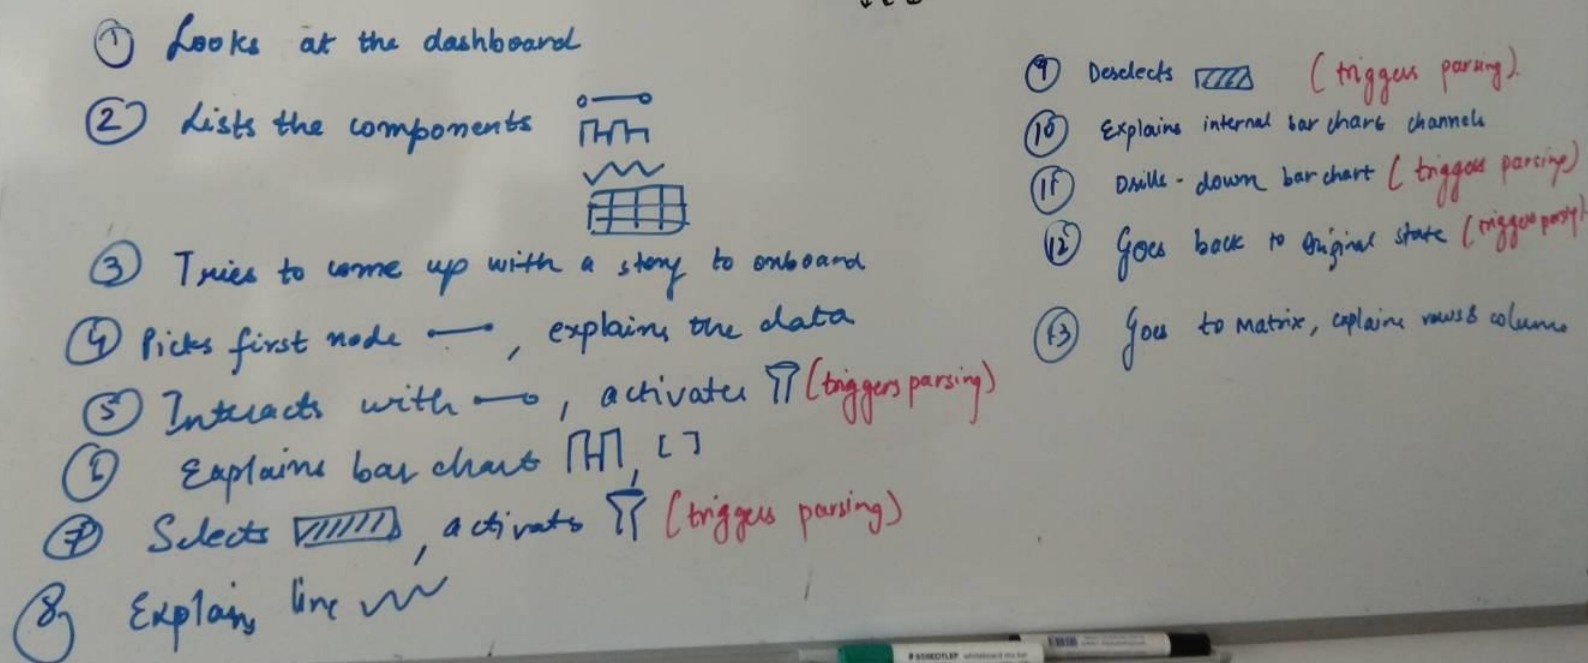 ① Looks at the dashboard
② Lists the components
③ Tries to come up with a story to onboard
④ Picks first node , explains the data
⑤ Interacts with , activates (triggers parsing)
⑥ Explains bar chart , [ ]
⑦ Selects , activats (triggers parsing)
⑧ Explains line
⑨ Deselects (triggers parsing)
⑩ Explains internal bar chart channels
⑪ Drills-down bar chart (triggers parsing)
⑫ Goes back to original state (triggers parsing)
⑬ Goes to matrix, explains rows & columns
STAEDTLER